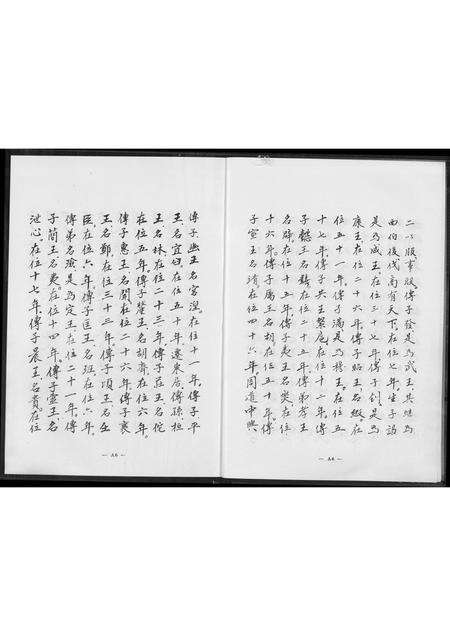 二以服事殷傳子發是為武王其繼為
西伯後伐商有天下在位七年生子誦
是為成王在位三十七年傳子釗是為
康王在位二十六年傳子昭王名瑕在
位五十一年傳子滿是為穆王在位五
十七年傳子共王繄扈在位十二年傳
子懿王名囏在位二十五年傳弟孝王
名辟在位十五年傳子夷王名燮在位
十六年傳子厲王名胡在位十六年傳
子宣王名靖在位四十六年周道中興
傳子幽王名宮湼在位十一年傳子平
王名宜臼在位五十年遷東居傳孫桓
王名林在位二十三年傳子莊王名佗
在位五年傳子釐王名胡齊在位六年
傳子惠王名閬在位二十六年傳子襄
王名鄭在位三十三年傳子頃王名壬
臣在位六年傳子匡王名班在位六年
傳弟名瑜是為定王在位二十一年傳
子簡王名夷在位十四年傳子靈王名
泄心在位十七年傳子景王名貴在位